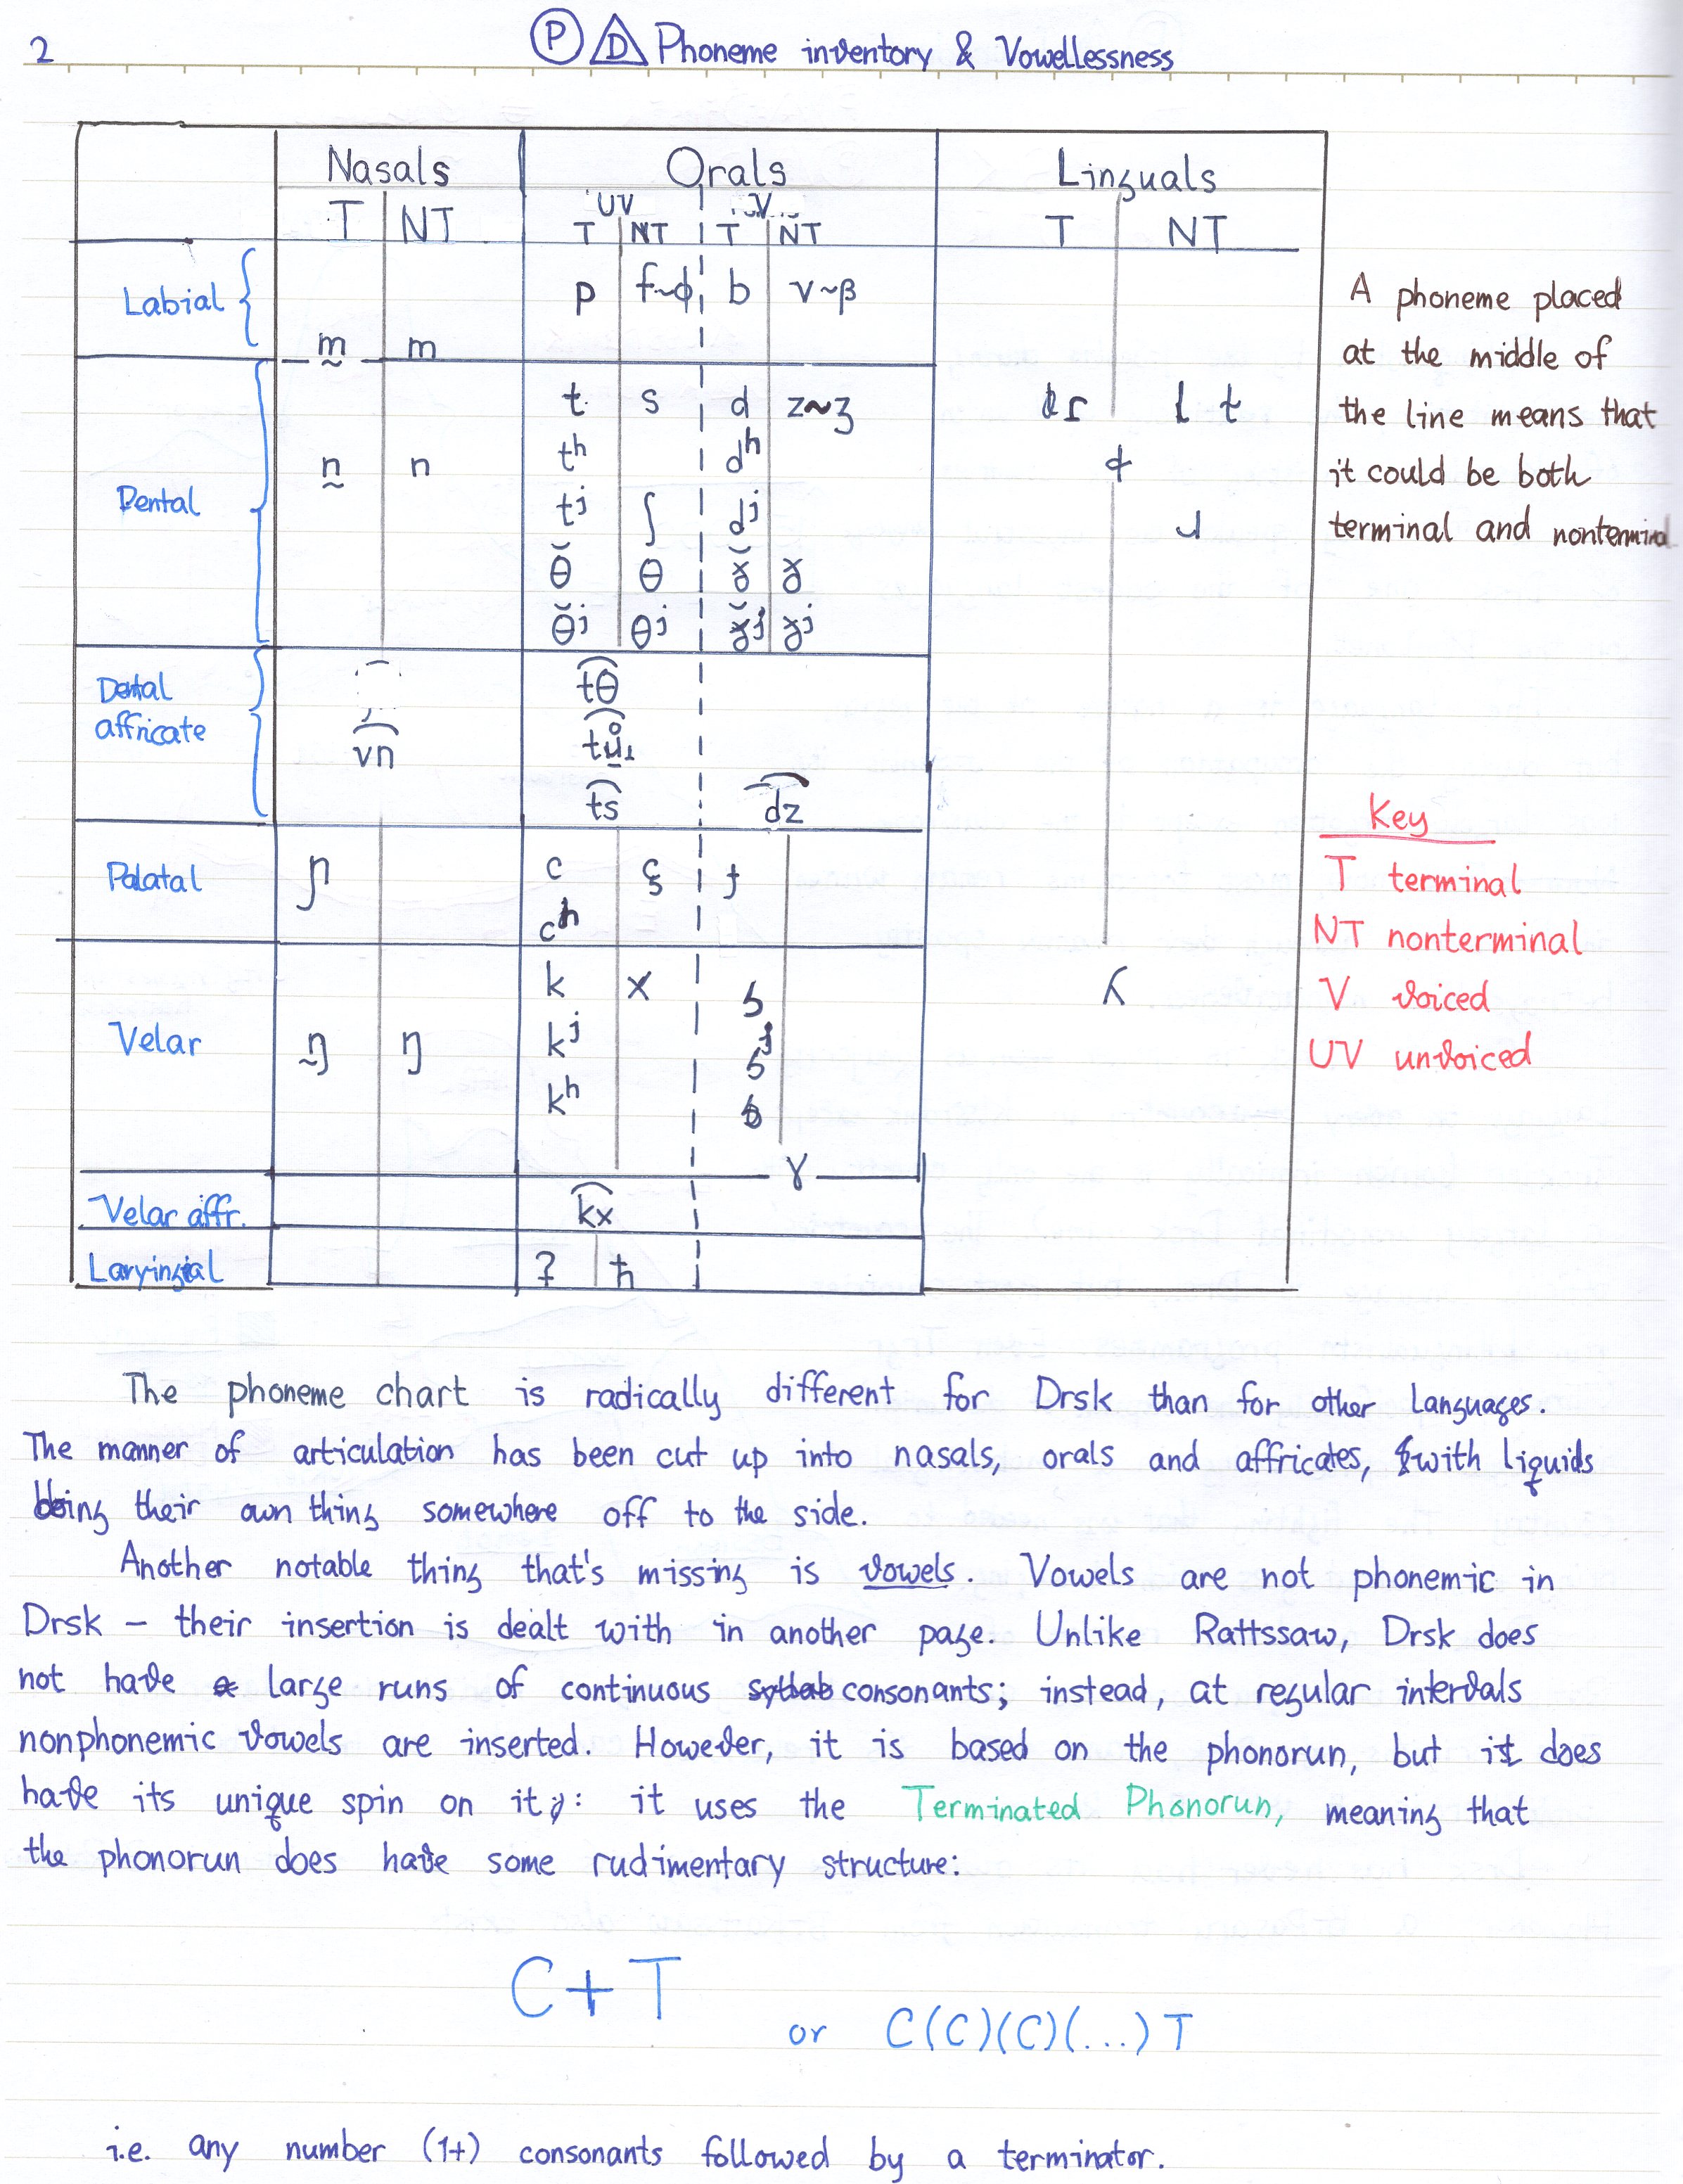 2
P D Phoneme inventory & Vowellessness
Nasals Orals Linguals
UV V
T NT T NT T NT T NT
Labial p f~ɸ b v~β
m̰ m
Dental t s d z~ʒ ɬ t
n̰ n tʰ dʰ
tʲ ʃ dʲ
θ̆ θ ɣ̆ ɣ
θ̆ʲ θʲ ɣ̆ʲ ɣʲ
Dental t͡θ
affricate v͡n
t͡s d͡z
Palatal ɲ c ç ɟ
cʰ
Velar ŋ̰ ŋ k x
kʲ
kʰ
ɣ
Velar affr. k͡x
Laryingial ʔ ħ
A phoneme placed
at the middle of
the line means that
it could be both
terminal and nonterminal
Key
T terminal
NT nonterminal
V voiced
UV unvoiced
The phoneme chart is radically different for Drsk than for other languages.
The manner of articulation has been cut up into nasals, orals and affricates, with liquids
being their own thing somewhere off to the side.
Another notable thing that's missing is vowels. Vowels are not phonemic in
Drsk – their insertion is dealt with in another page. Unlike Rattssaw, Drsk does
not have large runs of continuous consonants; instead, at regular intervals
nonphonemic vowels are inserted. However, it is based on the phonorun, but it does
have its unique spin on it: it uses the Terminated Phonorun, meaning that
the phonorun does have some rudimentary structure:
C+T
or C(C)(C)(...)T
i.e. any number (1+) consonants followed by a terminator.